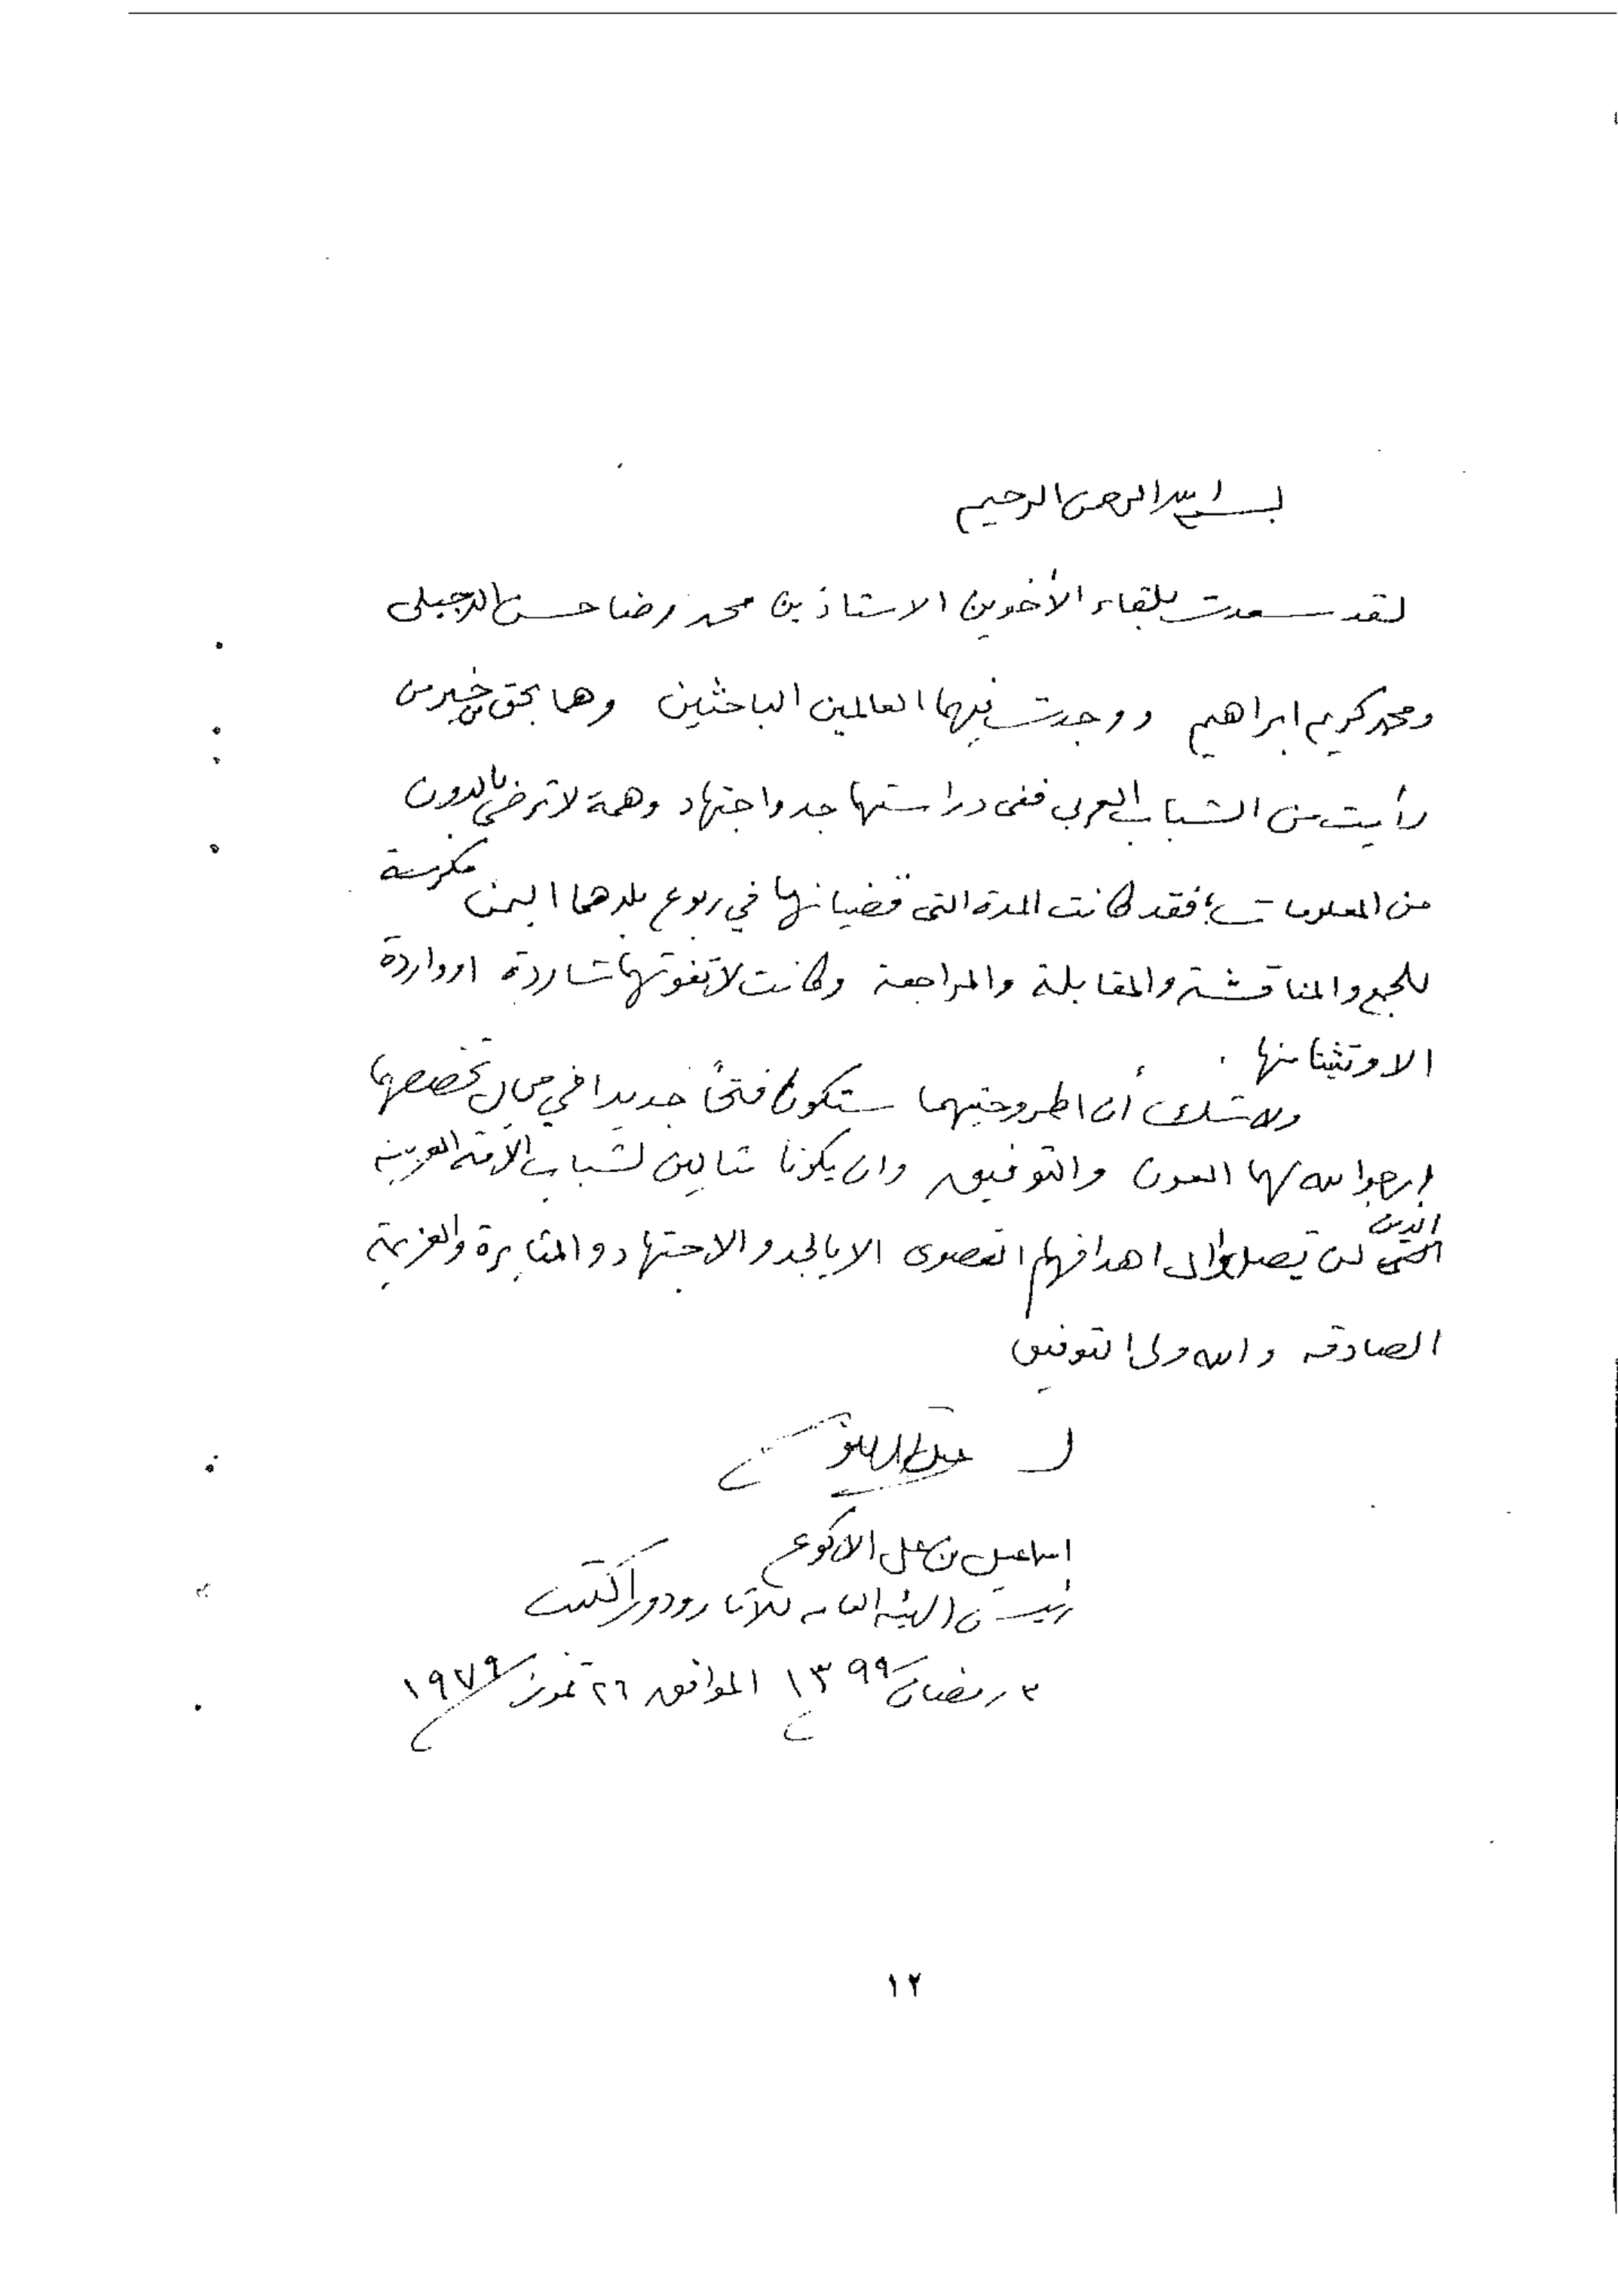 بسم الله الرحمن الرحيم
لقد سعدت بلقاء الأخوين الاستاذين محمد رضا حسن الدجيلي
ومحمد كريم ابراهيم ووجدت فيهما العالمين الباحثين وهما بحق من خير من
رأيت من الشباب العربي ففى دراستهما جد واجتهاد وهمة لا ترضى بالدون
من المعلومات، فقد كانت المدة التى قضيانها في ربوع بلدهما اليمن مكرسة
للجمع والمناقشة والمقابلة والمراجعة وكانت لا تفوتهما شاردة او واردة
الا وتثبتا منها .
ولا شك أن اطروحتيهما ستكون فتحاً جديدا في مجال تخصصهما
ارجو الله لهما العون والتوفيق وان يكونا مثالين لشباب الأمة العربية
الذين
لن يصلوا الى اهدافهم القصوى الا بالجد والاجتهاد والمثابرة والعزيمة
الصادقه والله ولى التوفيق
اسماعيل بن علي الاكوع
رئيس الهيئه العامه للآثار ودور الكتب
٣ رمضان ١٣٩٩ الموافق ٢٦ تموز ١٩٧٩
١٢